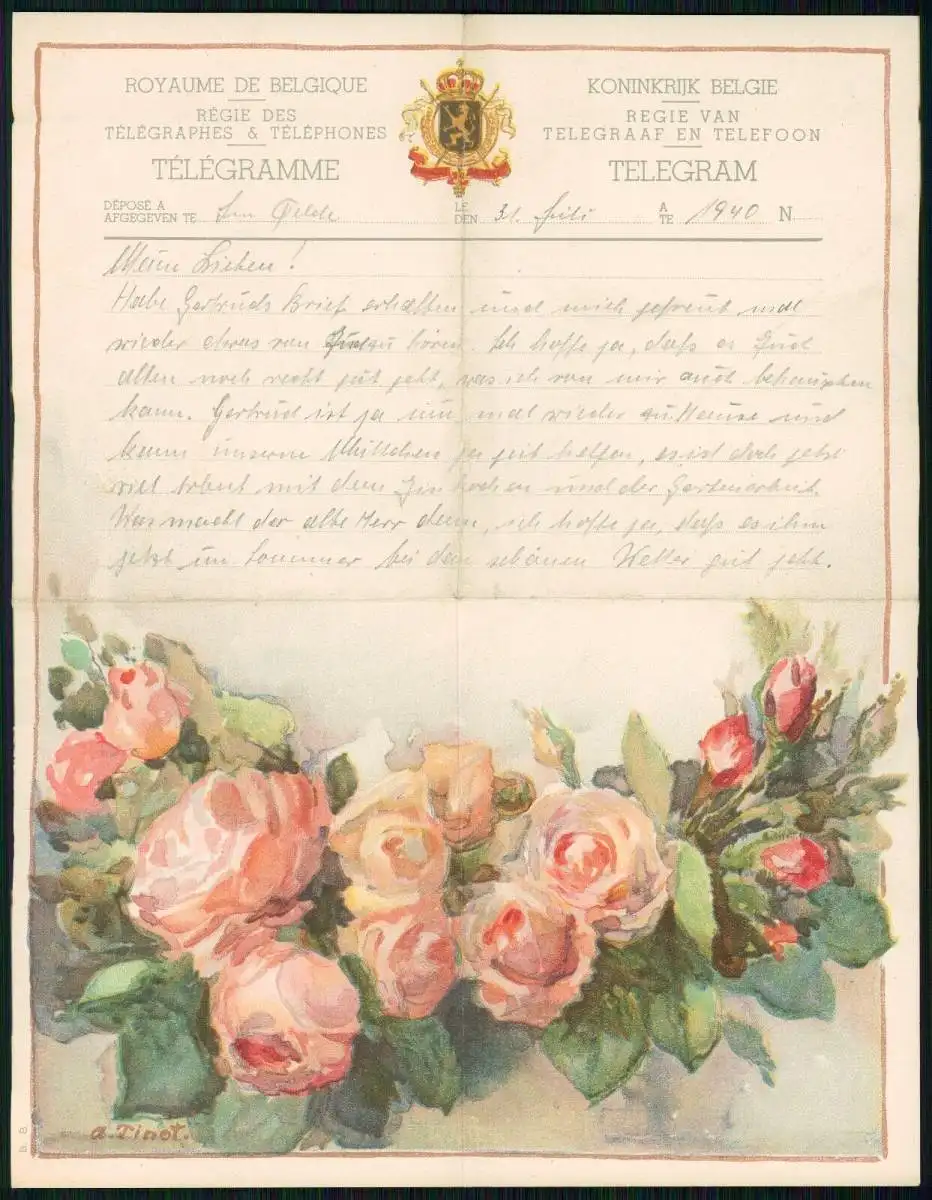 ROYAUME DE BELGIQUE
RÉGIE DES
TÉLÉGRAPHES & TÉLÉPHONES
TÉLÉGRAMME
KONINKRIJK BELGIE
REGIE VAN
TELEGRAAF EN TELEFOON
TELEGRAM
DÉPOSÉ A
AFGEGEVEN TE Im Felde
LE
DEN 31. Juli
A
TE 1940 N
Meine Lieben!
Habe Gertruds Brief erhalten und mich gefreut mal
wieder etwas von zu hören. Ich hoffe ja, daß es Euch
allen noch recht gut geht, was ich von mir auch behaupten
kann. Gertrud ist ja nun mal wieder zu Hause und
kann unserm Muttchen ja gut helfen, es ist doch jetzt
viel Arbeit mit dem und der Gartenarbeit.
Was macht der alte Herr denn, ich hoffe ja, daß es ihm
jetzt im Sommer bei dem schönen Wetter gut geht.
A. Tinot.